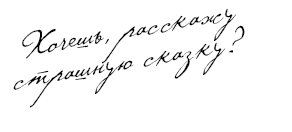 Хочешь, расскажу
страшную сказку?